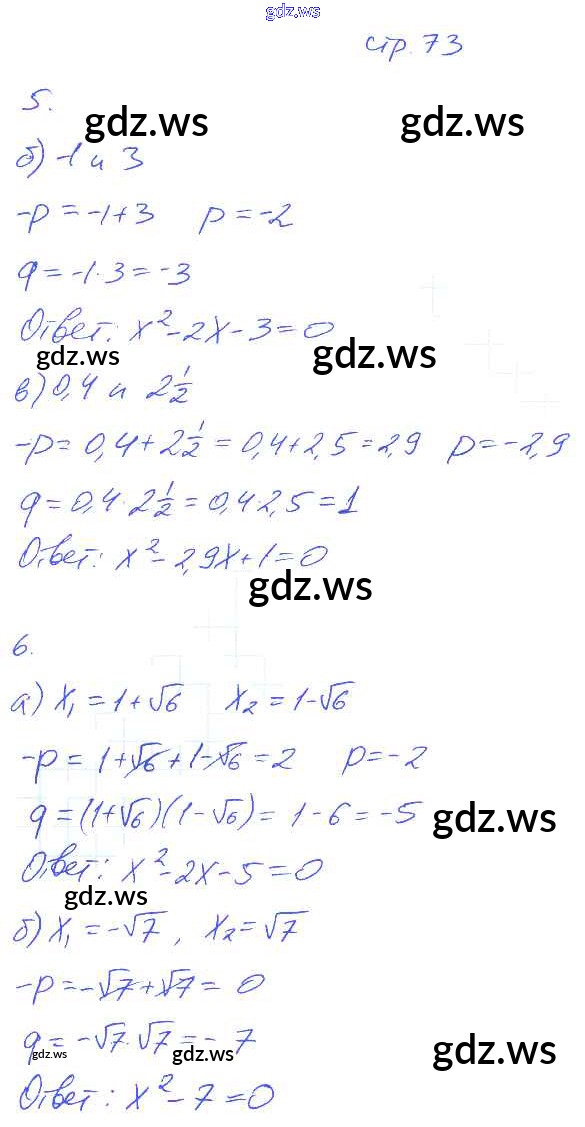 gdz.ws
стр. 73
5.
gdz.ws gdz.ws
б) -1 и 3
-p = -1+3 p = -2
q = -1·3 = -3
Ответ: x²-2x-3=0
gdz.ws gdz.ws
в) 0,4 и 2 1/2
-p = 0,4+2 1/2 = 0,4+2,5 = 2,9 p = -2,9
q = 0,4·2 1/2 = 0,4·2,5 = 1
Ответ: x²-2,9x+1=0
gdz.ws
6.
а) x₁ = 1+√6 x₂ = 1-√6
-p = 1+√6+1-√6 = 2 p = -2
q = (1+√6)(1-√6) = 1-6 = -5
gdz.ws
Ответ: x²-2x-5=0
gdz.ws
б) x₁ = -√7, x₂ = √7
-p = -√7+√7 = 0
q = -√7·√7 = -7
gdz.ws gdz.ws gdz.ws
Ответ: x²-7=0